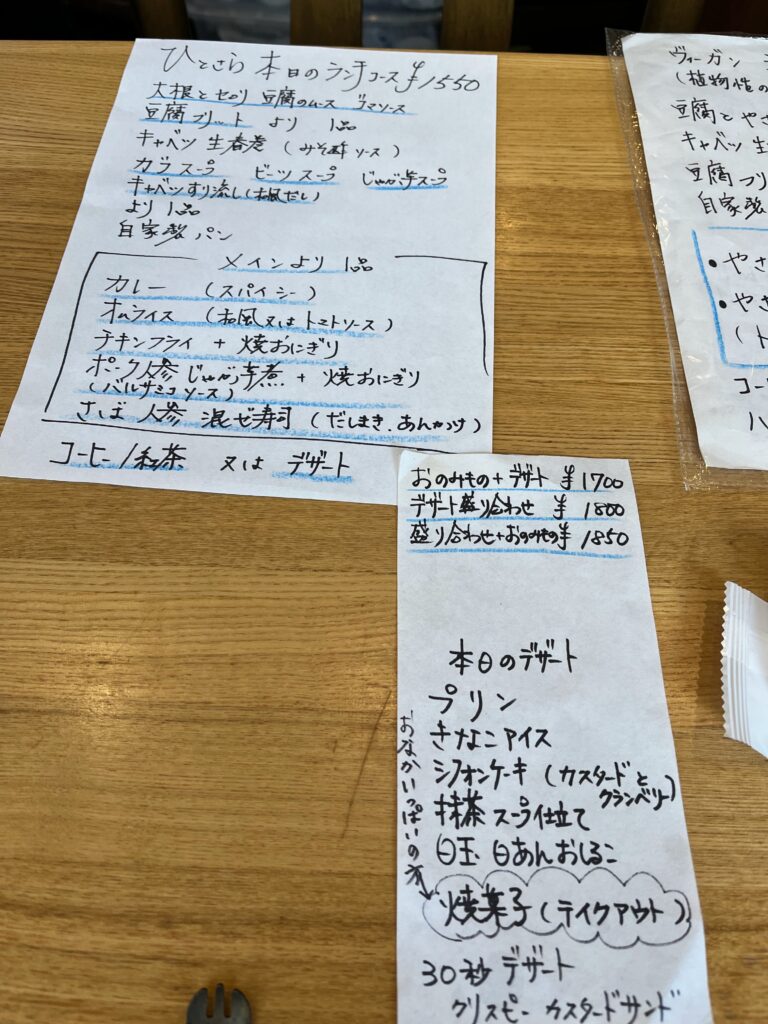 ひとさら 本日のランチコース ¥1550
大根とセロリ 豆腐のムース ゴマソース
豆腐フリット より 1品
キャベツ 生春巻 (みそ酢ソース)
カブスープ ビーツスープ じゃが芋スープ
キャベツすり流し(和風だし)
より 1品
自家製パン
メインより 1品
カレー (スパイシー)
オムライス (和風又はトマトソース)
チキンフライ + 焼おにぎり
ポーク人参じゃが芋煮 + 焼おにぎり
(バルサミコソース)
さば 人参 混ぜ寿司 (だしまき、あんかけ)
コーヒー/紅茶 又は デザート
おのみもの+デザート ¥1700
デザート盛り合わせ ¥1800
盛り合わせ+おのみもの ¥1850
本日のデザート
プリン
きなこアイス
シフォンケーキ (カスタードと
クランベリー)
抹茶スープ仕立て
白玉 白あんおしるこ
おなかいっぱいの方
焼菓子(テイクアウト)
30秒デザート
クリスピーカスタードサンド
ヴィーガン
(植物性の
豆腐とやさ
キャベツ生
豆腐フリ
自家製
・やさ
・やさ
(ト
コー
ハ